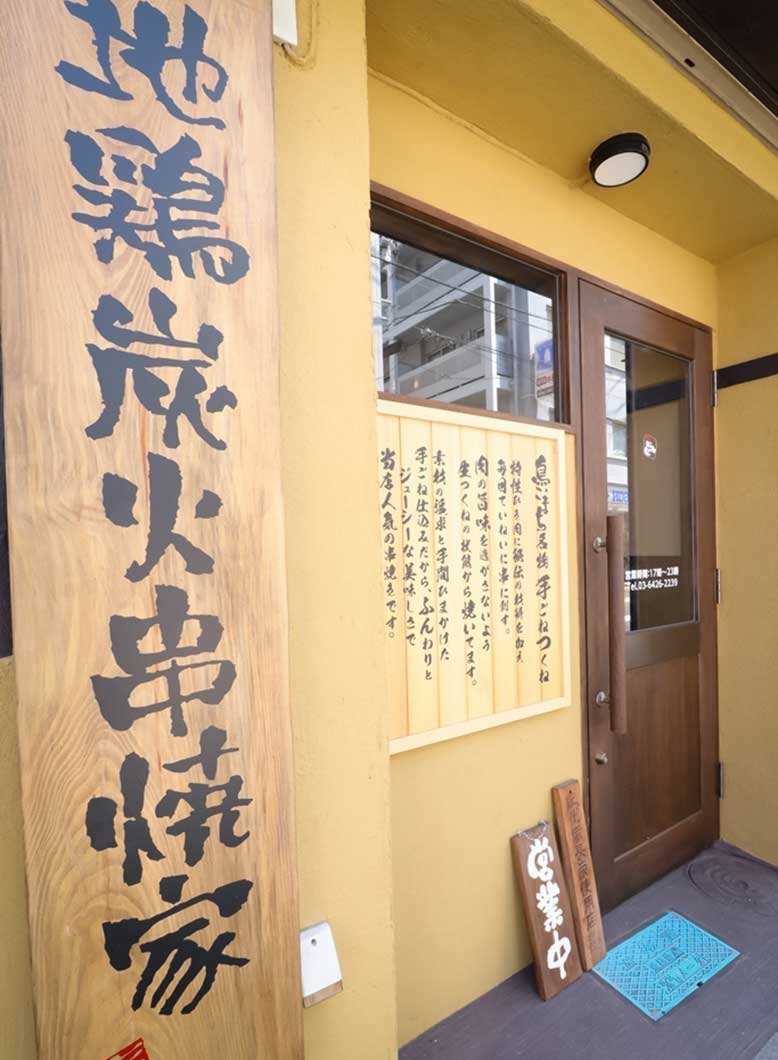 地鶏炭火串焼家
鳥いちの名物 手ごねつくね
特性ひき肉に秘伝の技術を加え
毎回ていねいに串に刺す。
肉の旨味を逃がさないよう
生つくねの状態から焼いてます。
素材の追求と手間ひまかけた
手ごね仕込みだから、ふんわりと
ジューシーな美味しさで
当店人気の串焼きです。
営業時間:17時〜23時
Tel.03-6426-2239
営業中